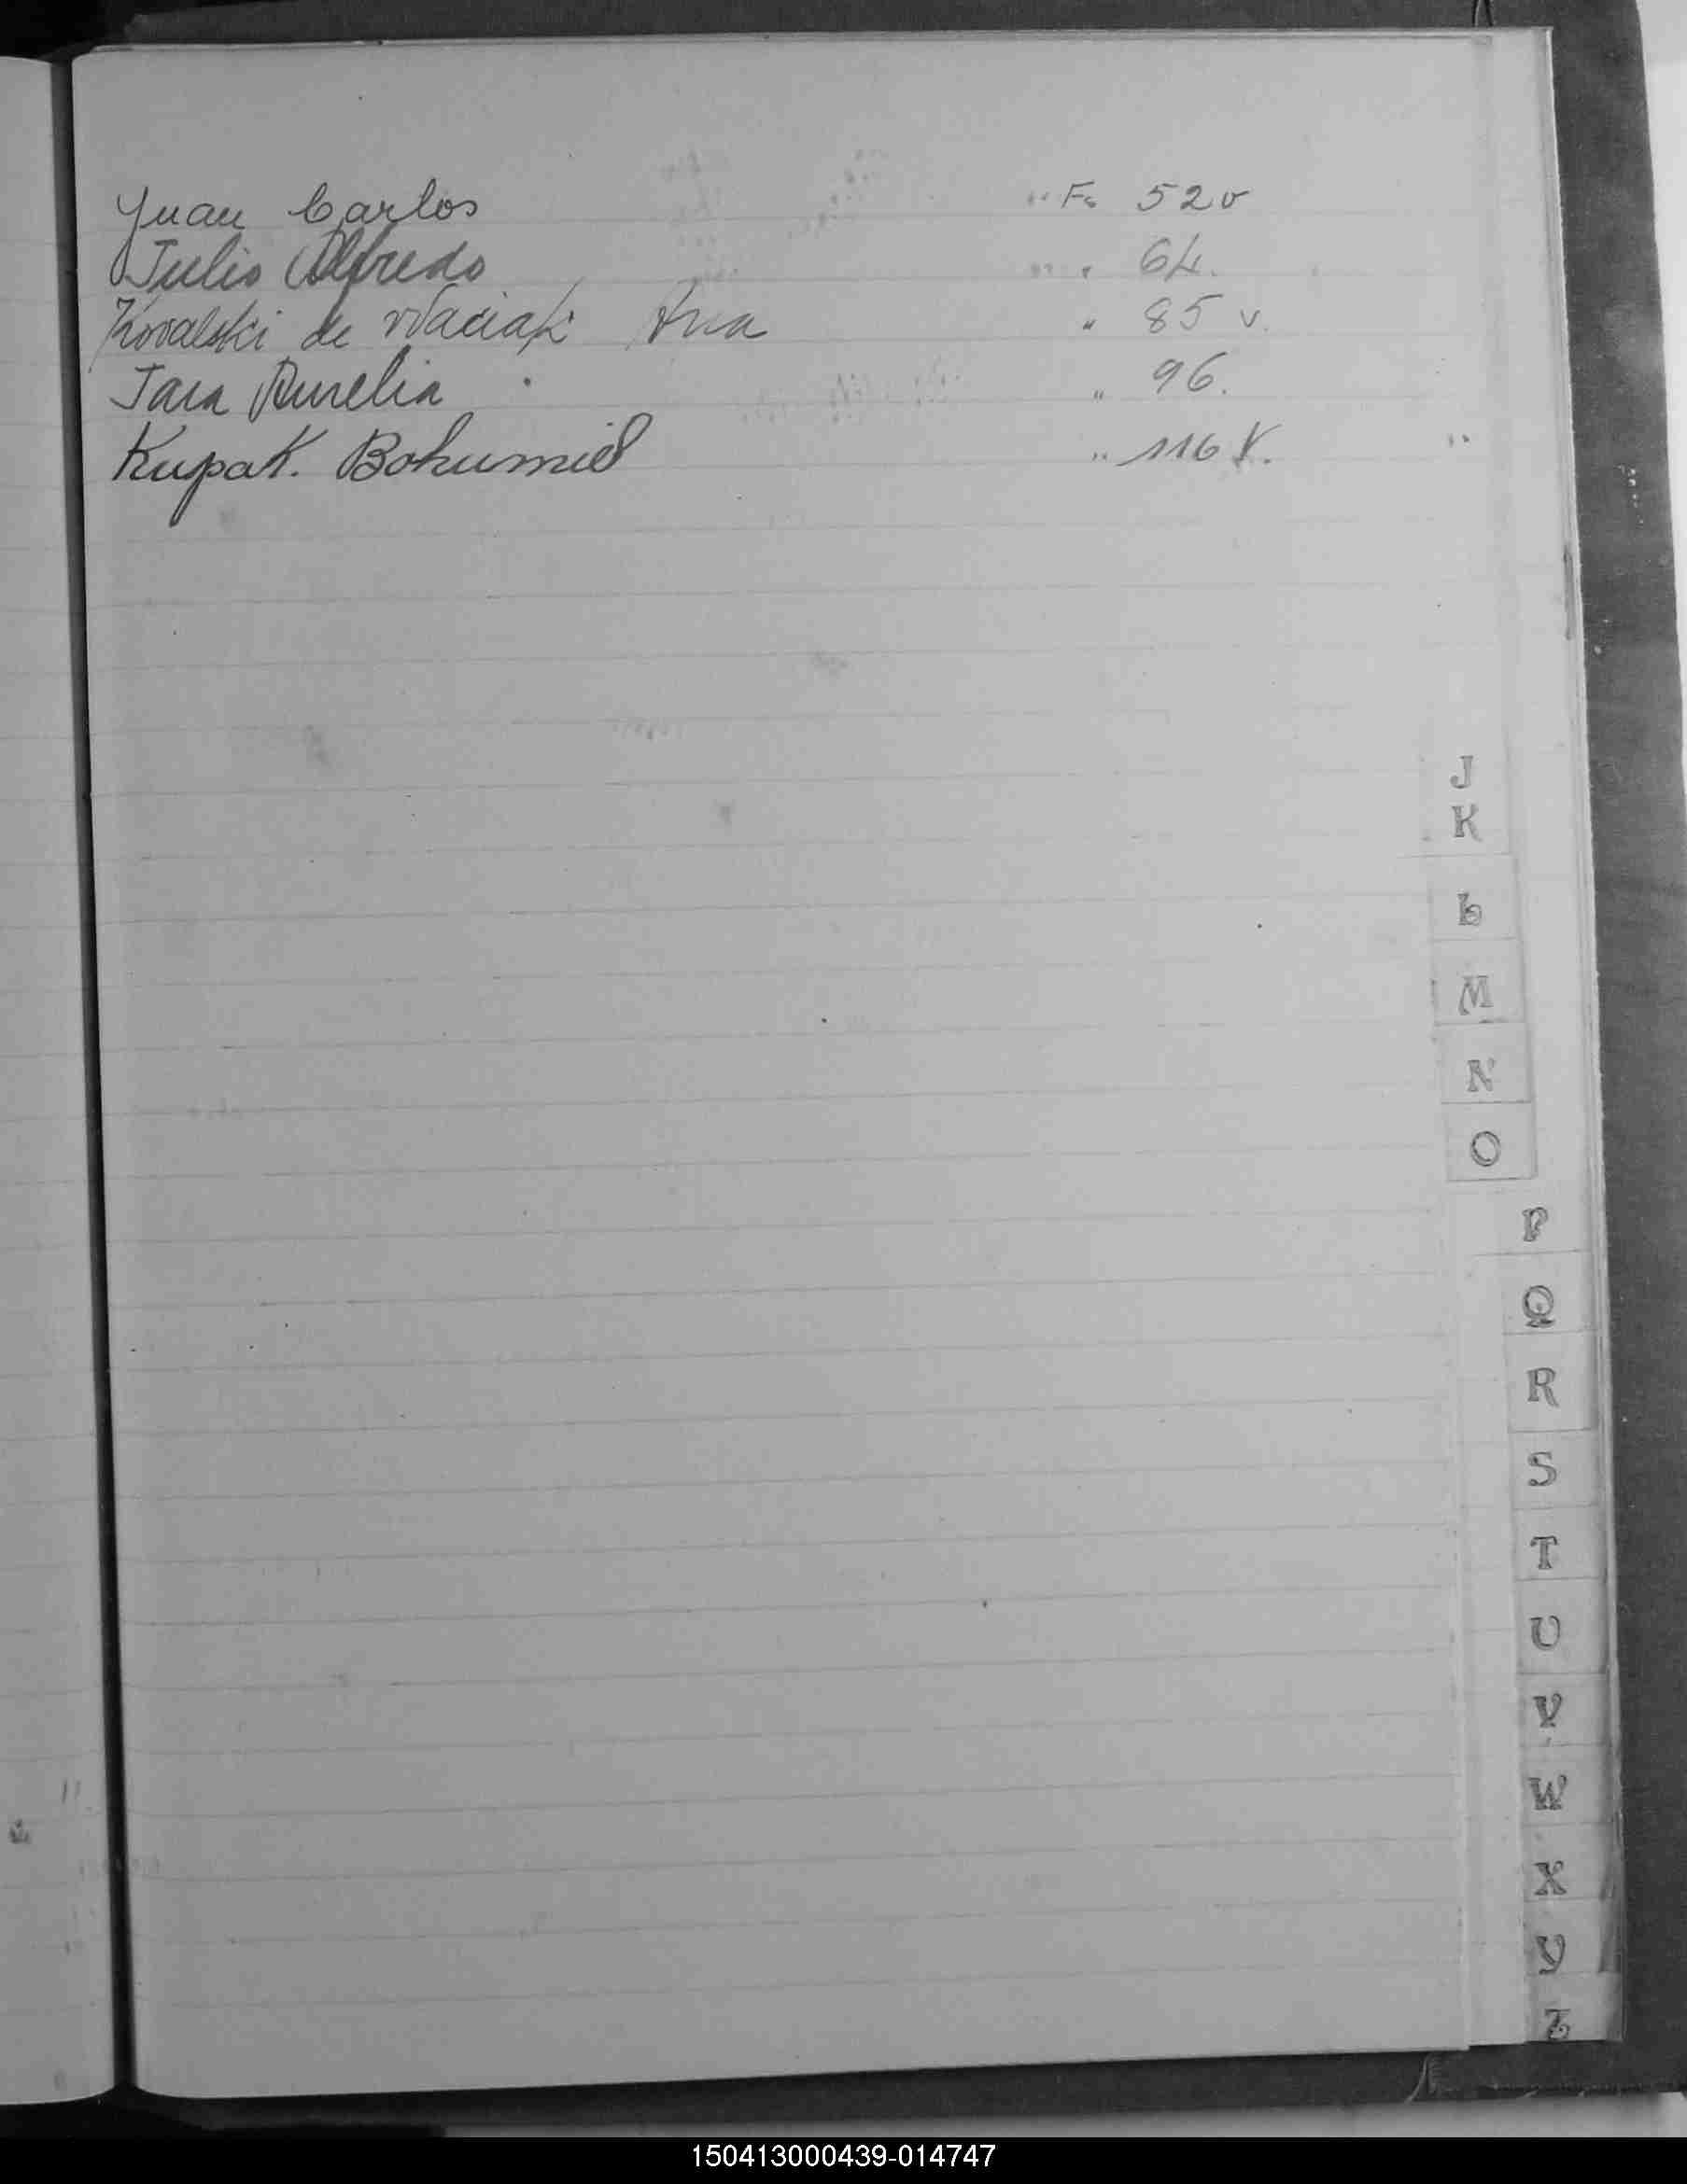 Juan Carlos " Fo 52v
Julio Alfredo " 64.
Kovalski de Ana " 85 v.
Jara Aurelia " 96.
Kupak. Bohumil " 116 V.
J
K
L
M
N
O
P
Q
R
S
T
U
V
W
X
Y
Z
150413000439-014747